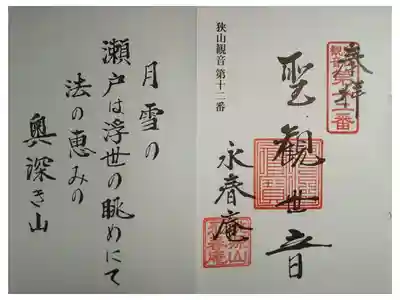 奉拝
聖観世音
狭山観音 第十二番
永春庵
月雪の
瀬戸は浮世の眺めにて
法の恵みの
奥深き山